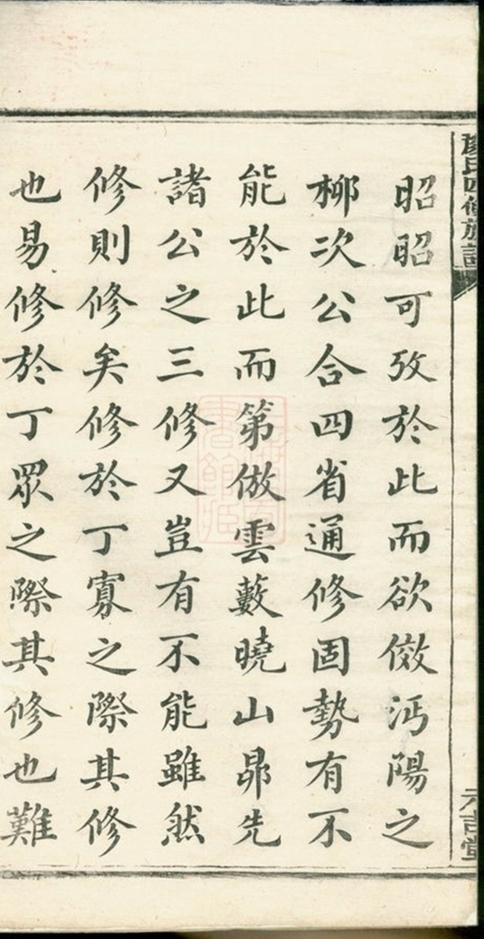 昭昭可攷於此而欲傚沔陽之
柳次公合四省通修固勢有不
能於此而第倣雲藪曉山昴先
諸公之三修又豈有不能雖然
修則修矣修於丁寡之際其修
也易修於丁眾之際其修也難